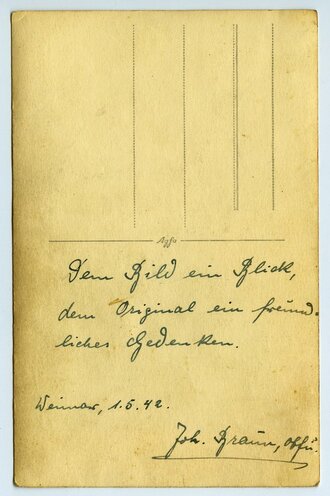 Agfa
Dem Bild ein Blick,
dem Original ein freund-
liches Gedenken.
Weimar, 1.5.42.
Joh. Braun,